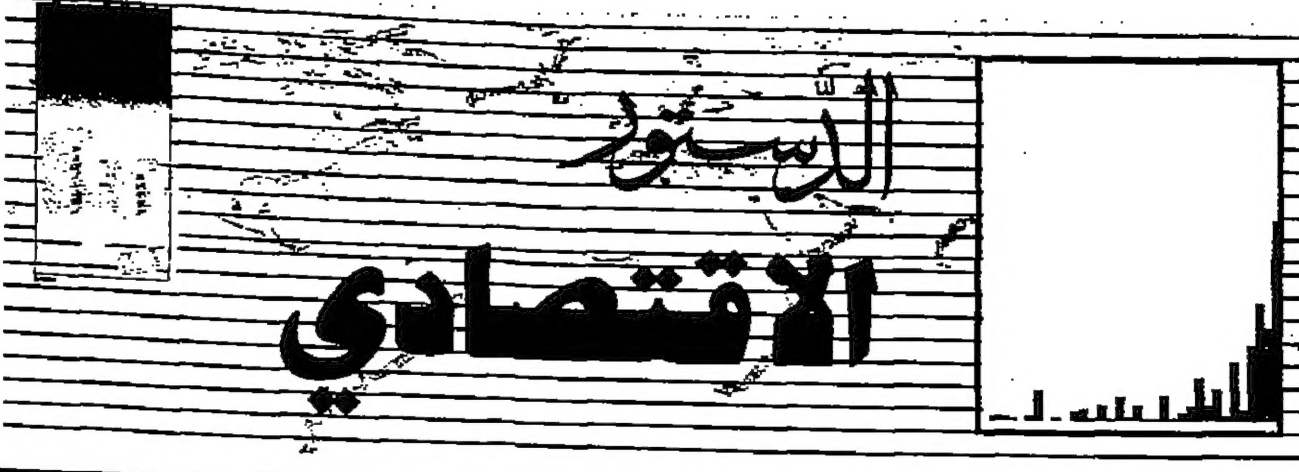 الدستور
الاقتصادي